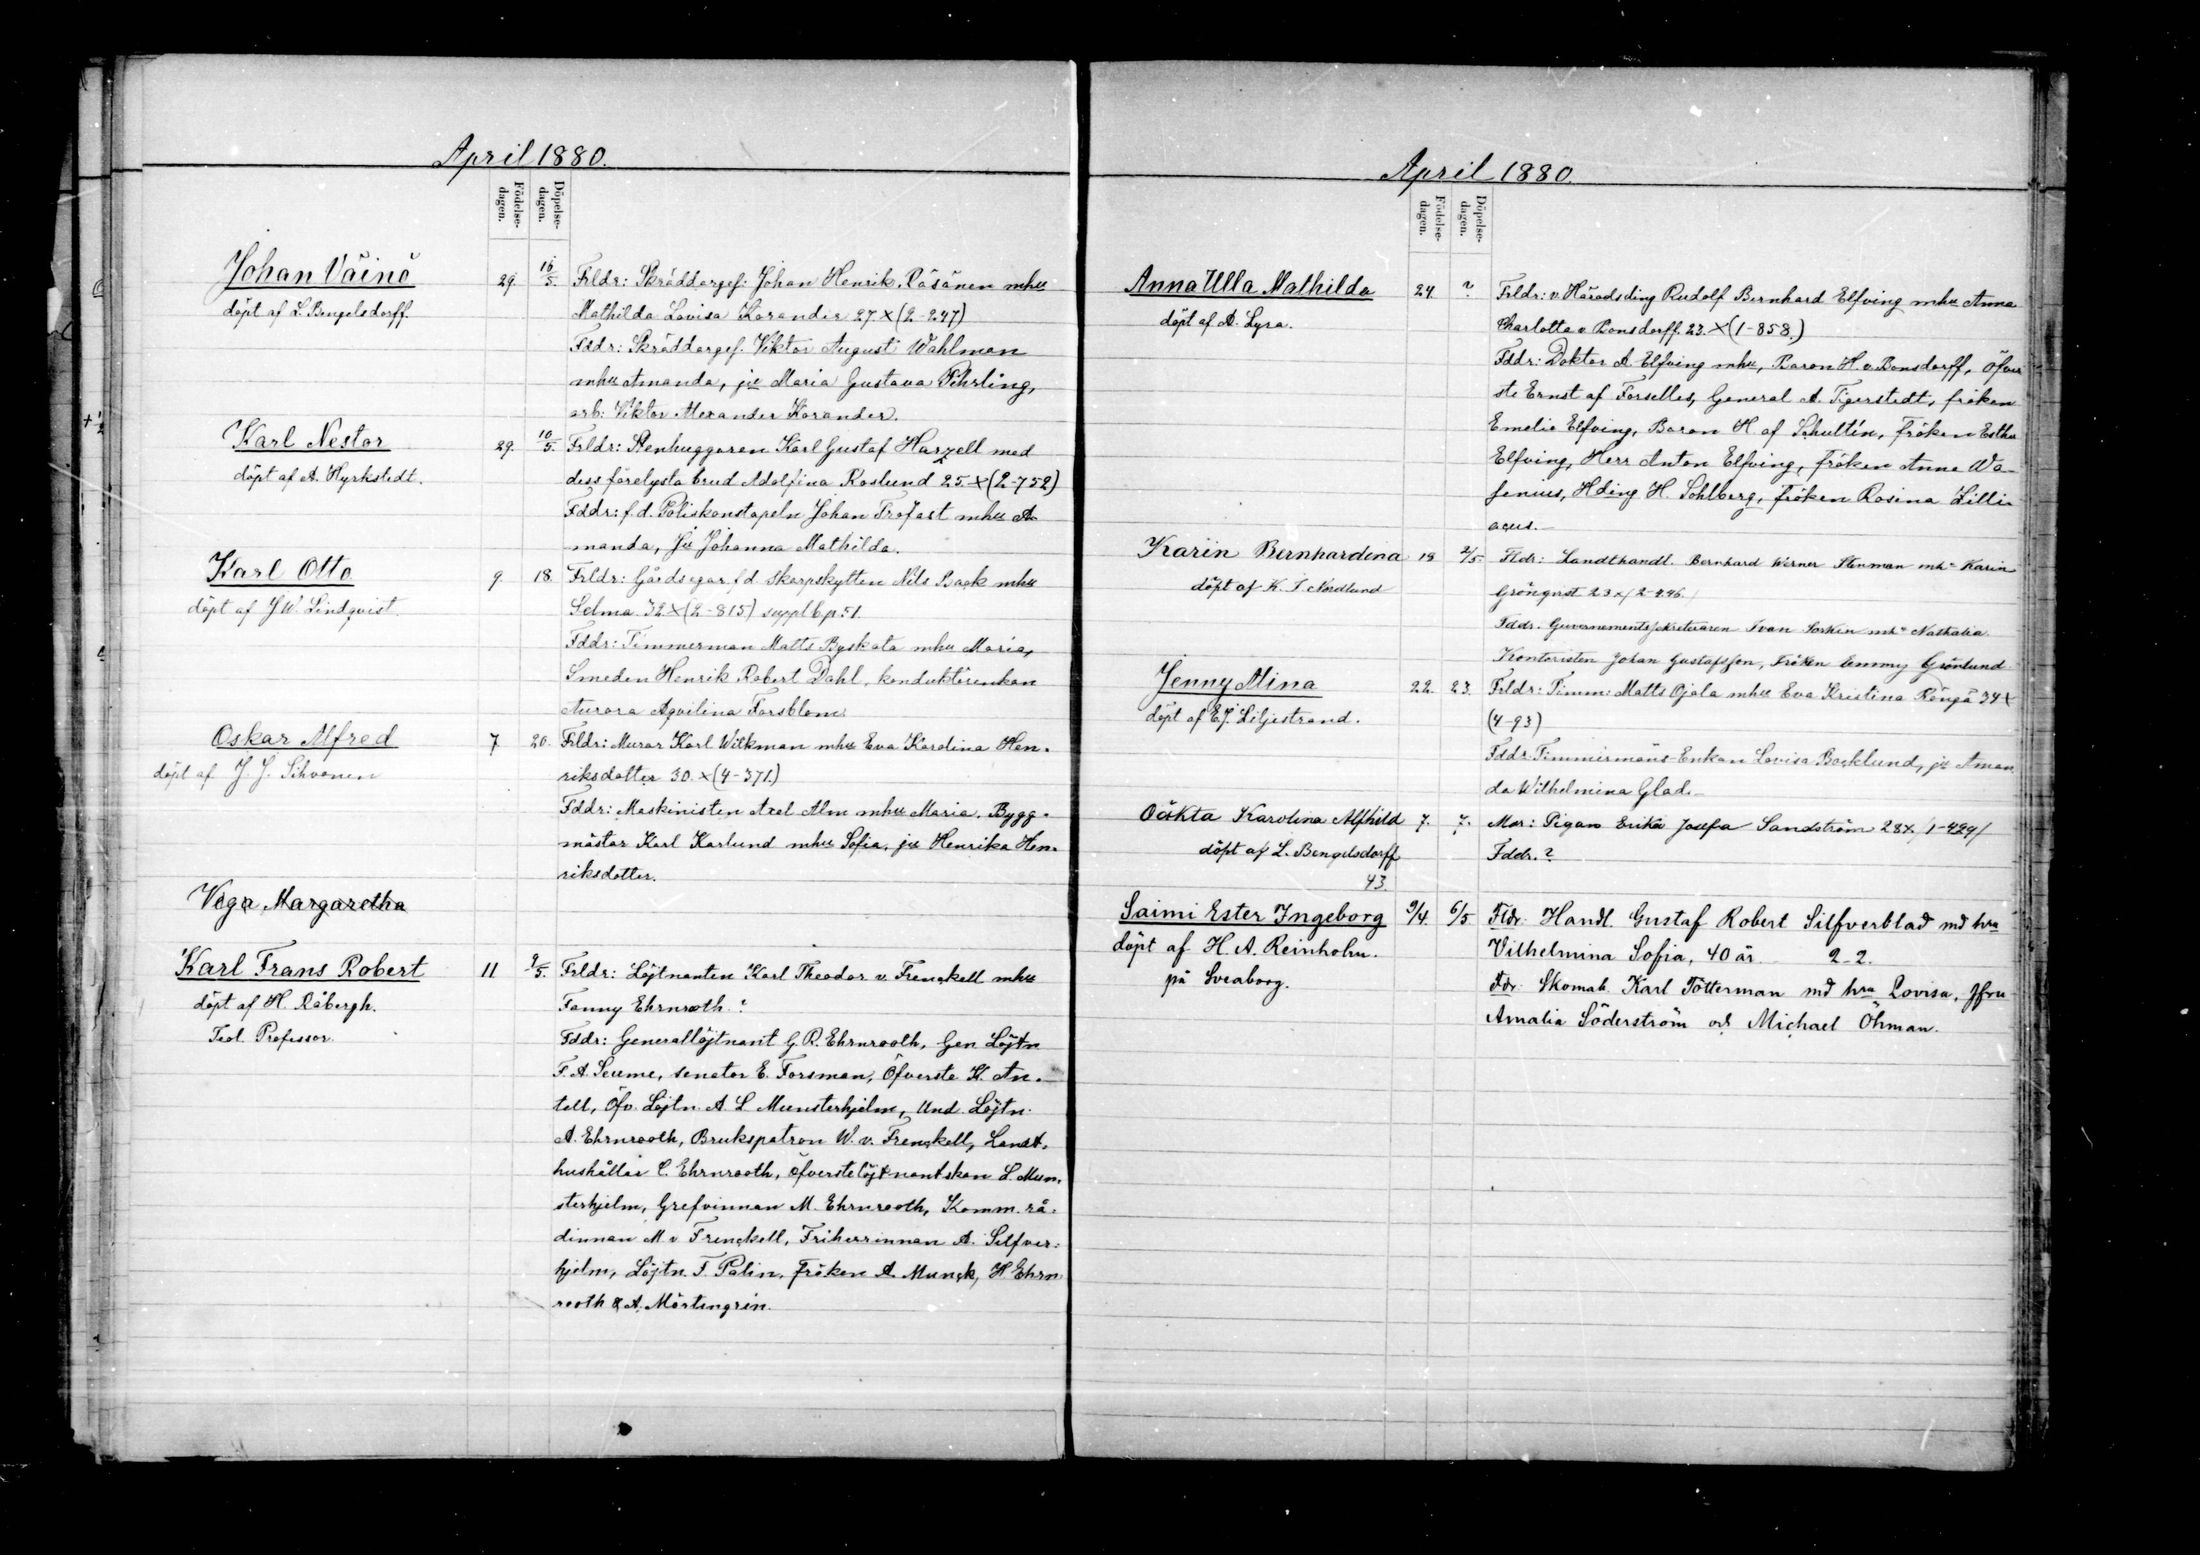 April 1880.
Födelse-
dagen.
Döpelse-
dagen.
Johan Väinö
döpt af L. Bengelsdorff.
29. 16/5. Frldr: Skräddargef: Johan Henrik Räsänen mhu
Mathilda Lovisa Korander 27 x (2-247)
Fddr: Skräddargef. Viktor August Wahlman
mhu Amanda, ju Maria Gustava Fehrling,
arb: Viktor Alexander Korander.
Karl Nestor
döpt af A. Hyrkstedt.
29. 10/5. Frldr: Stenhuggaren Karl Gustaf Harzell med
dess förelysta brud Adolfina Roslund 25. x (2-752)
Fddr: f.d. Poliskonstapeln Johan Trofast mhu A-
manda, Ju Johanna Mathilda.
Karl Otto
döpt af J W. Lindqvist.
9. 18. Frldr: Gårdsegar f d. skarpskytten Nils Back mhu
Selma 32 x (2-815) supplb p. 51.
Fddr: Timmerman Matts Byskata mhu Maria,
Smeden Henrik Robert Dahl, konduktörenkan
Aurora Aqvilina Forsblom
Oskar Alfred
döpt af J. J. Sihvonen
7 20. Frldr: Murar Karl Wilkman mhu Eva Karolina Hen-
riksdotter 30. x (4-371.)
Fddr: Maskinisten Axel Alm mhu Maria. Bygg-
mästar Karl Karlund mhu Sofia, ju Henrika Hen-
riksdotter.
Vega Margaretha
Karl Frans Robert
döpt af H. Råbergh.
Teol. Professor.
11 9/5. Frldr: Löjtnanten Karl Theodor v. Frenckell mhu
Fanny Ehrnrooth. ?
Fddr: Generallöjtnant G. R. Ehrnrooth, Gen Löjtn
F. A. Seume, senator E. Forsman, Öfverste K. An-
tell, Öfv. Löjtn. A L Munsterhjelm, Und. Löjtn.
A. Ehrnrooth, Brukspatron W. v. Frenckell, Landt-
hushållar C. Ehrnrooth, öfverstelöjtnantskan L. Mun-
sterhjelm, Grefvinnan M. Ehrnrooth, Komm. rå-
dinnan M v Frenckell, Friherrinnan A. Silfver-
hjelm, Löjtn. F. Palin, Fröken A. Munck, H Ehrn-
rooth & A. Mårtengrén.
April 1880.
Födelse-
dagen.
Döpelse-
dagen.
Anna Ulla Mathilda
döpt af A. Lyra.
24. ? Frldr: v. Häradsding Rudolf Bernhard Elfving mhu Anna
Charlotta v. Bonsdorff. 23. x (1-858.)
Fddr: Doktor A Elfving mhu, Baron H. v. Bonsdorff, Öfver
ste Ernst af Forselles, General A. Tigerstedt, fröken
Emelie Elfving, Baron H af Schultén, fröken Esther
Elfving, Herr Anton Elfving, fröken Anna Wa-
senius, Hding H. Sohlberg, fröken Rosina Lilli-
acus.
Karin Bernhardina
döpt af K. T. Nordlund
18 2/5. Fldr: Landthandl. Bernhard Werner Stenman mh Karin
Grönqvist 23 x / 2-446. /
Fddr. Guvernementssekreteraren Ivan Sorkin mh Nathalia.
Kontoristen Johan Gustafsson, Fröken Emmy Grönlund
Jenny Alina
döpt af E J. Liljestrand.
22. 23. Frldr: Timm: Matts Ojala mhu Eva Kristina Röngä 34 x
(4-93)
Fddr: Timmermans-Enkan Lovisa Backlund, ju Aman
da Wilhelmina Glad.
Oäkta Karolina Alfhild
döpt af L. Bengelsdorff
43.
7. 7. Mor: Pigan Erika Josefa Sandström 28 x / 1-429 /
Fddr. ?
Saimi Ester Ingeborg
döpt af H. A. Reinholm.
på Sveaborg.
9/4. 6/5 Fldr. Handl. Gustaf Robert Silfverblad md hru
Vilhelmina Sofia, 40 år. 2-2.
Fdr. Skomak. Karl Tötterman md hru Lovisa, Jfru
Amalia Söderström och Michael Öhman.